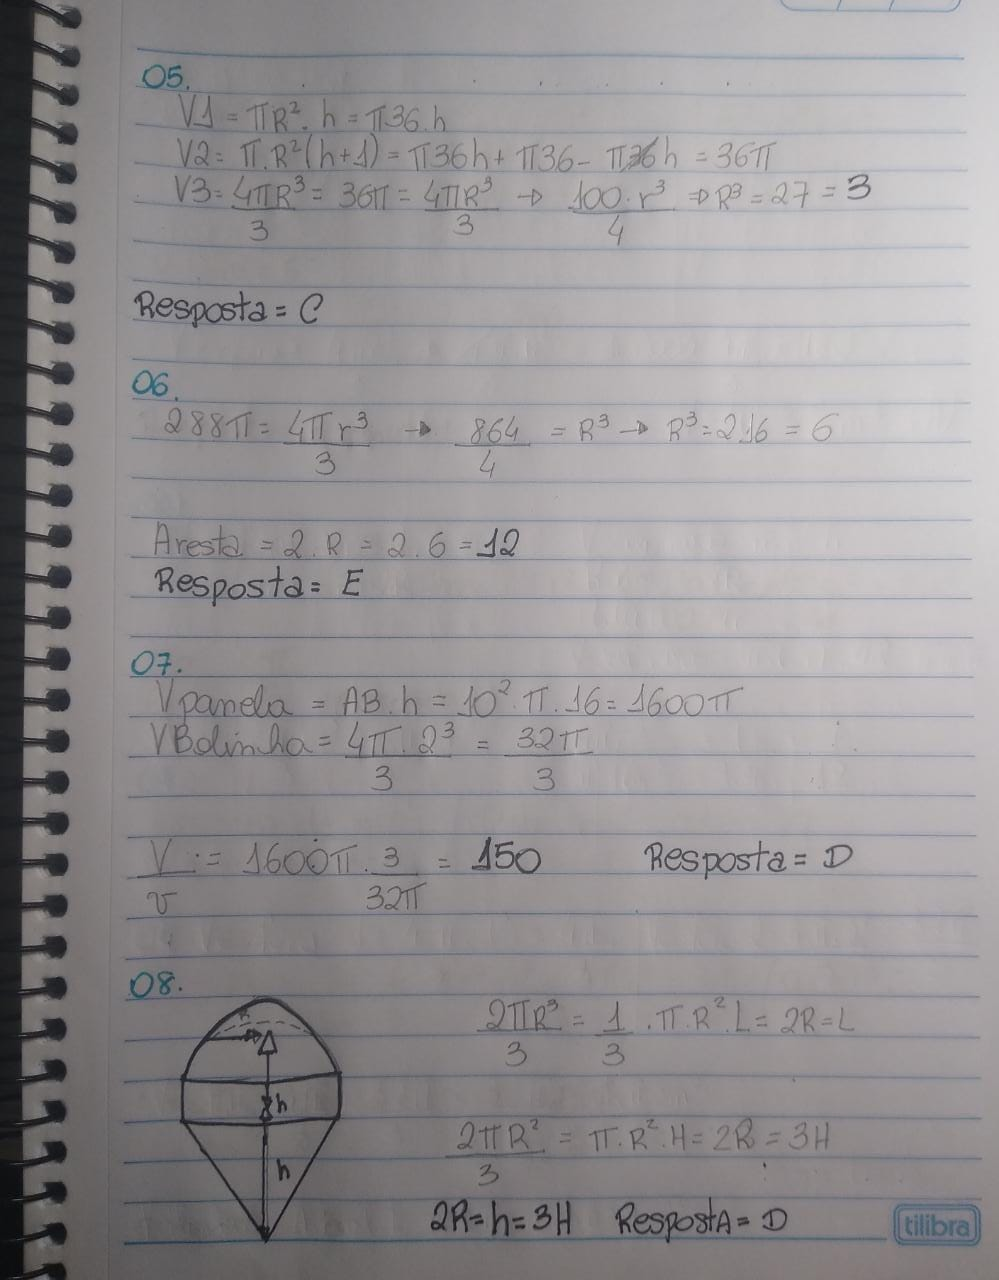 05.
V1 = πR². h = π36.h
V2 = π.R²(h+1) = π36h + π36 - π36h = 36π
V3 = 4πR³/3 = 36π = 4πR³/3 → 100.r³/4 ⇒ R³ = 27 = 3
Resposta = C
06.
288π = 4πr³/3 → 864/4 = R³ → R³ = 216 = 6
Aresta = 2.R = 2.6 = 12
Resposta = E
07.
Vpanela = AB.h = 10².π.16 = 1600π
VBolinha = 4π.2³/3 = 32π/3
V/v = 1600π.3/32π = 150 Resposta = D
08.
2πR³/3 = 1/3 .π.R².L = 2R = L
h
2πR²/3 = π.R².H = 2R = 3H
h
2R = h = 3H Resposta = D
tilibra